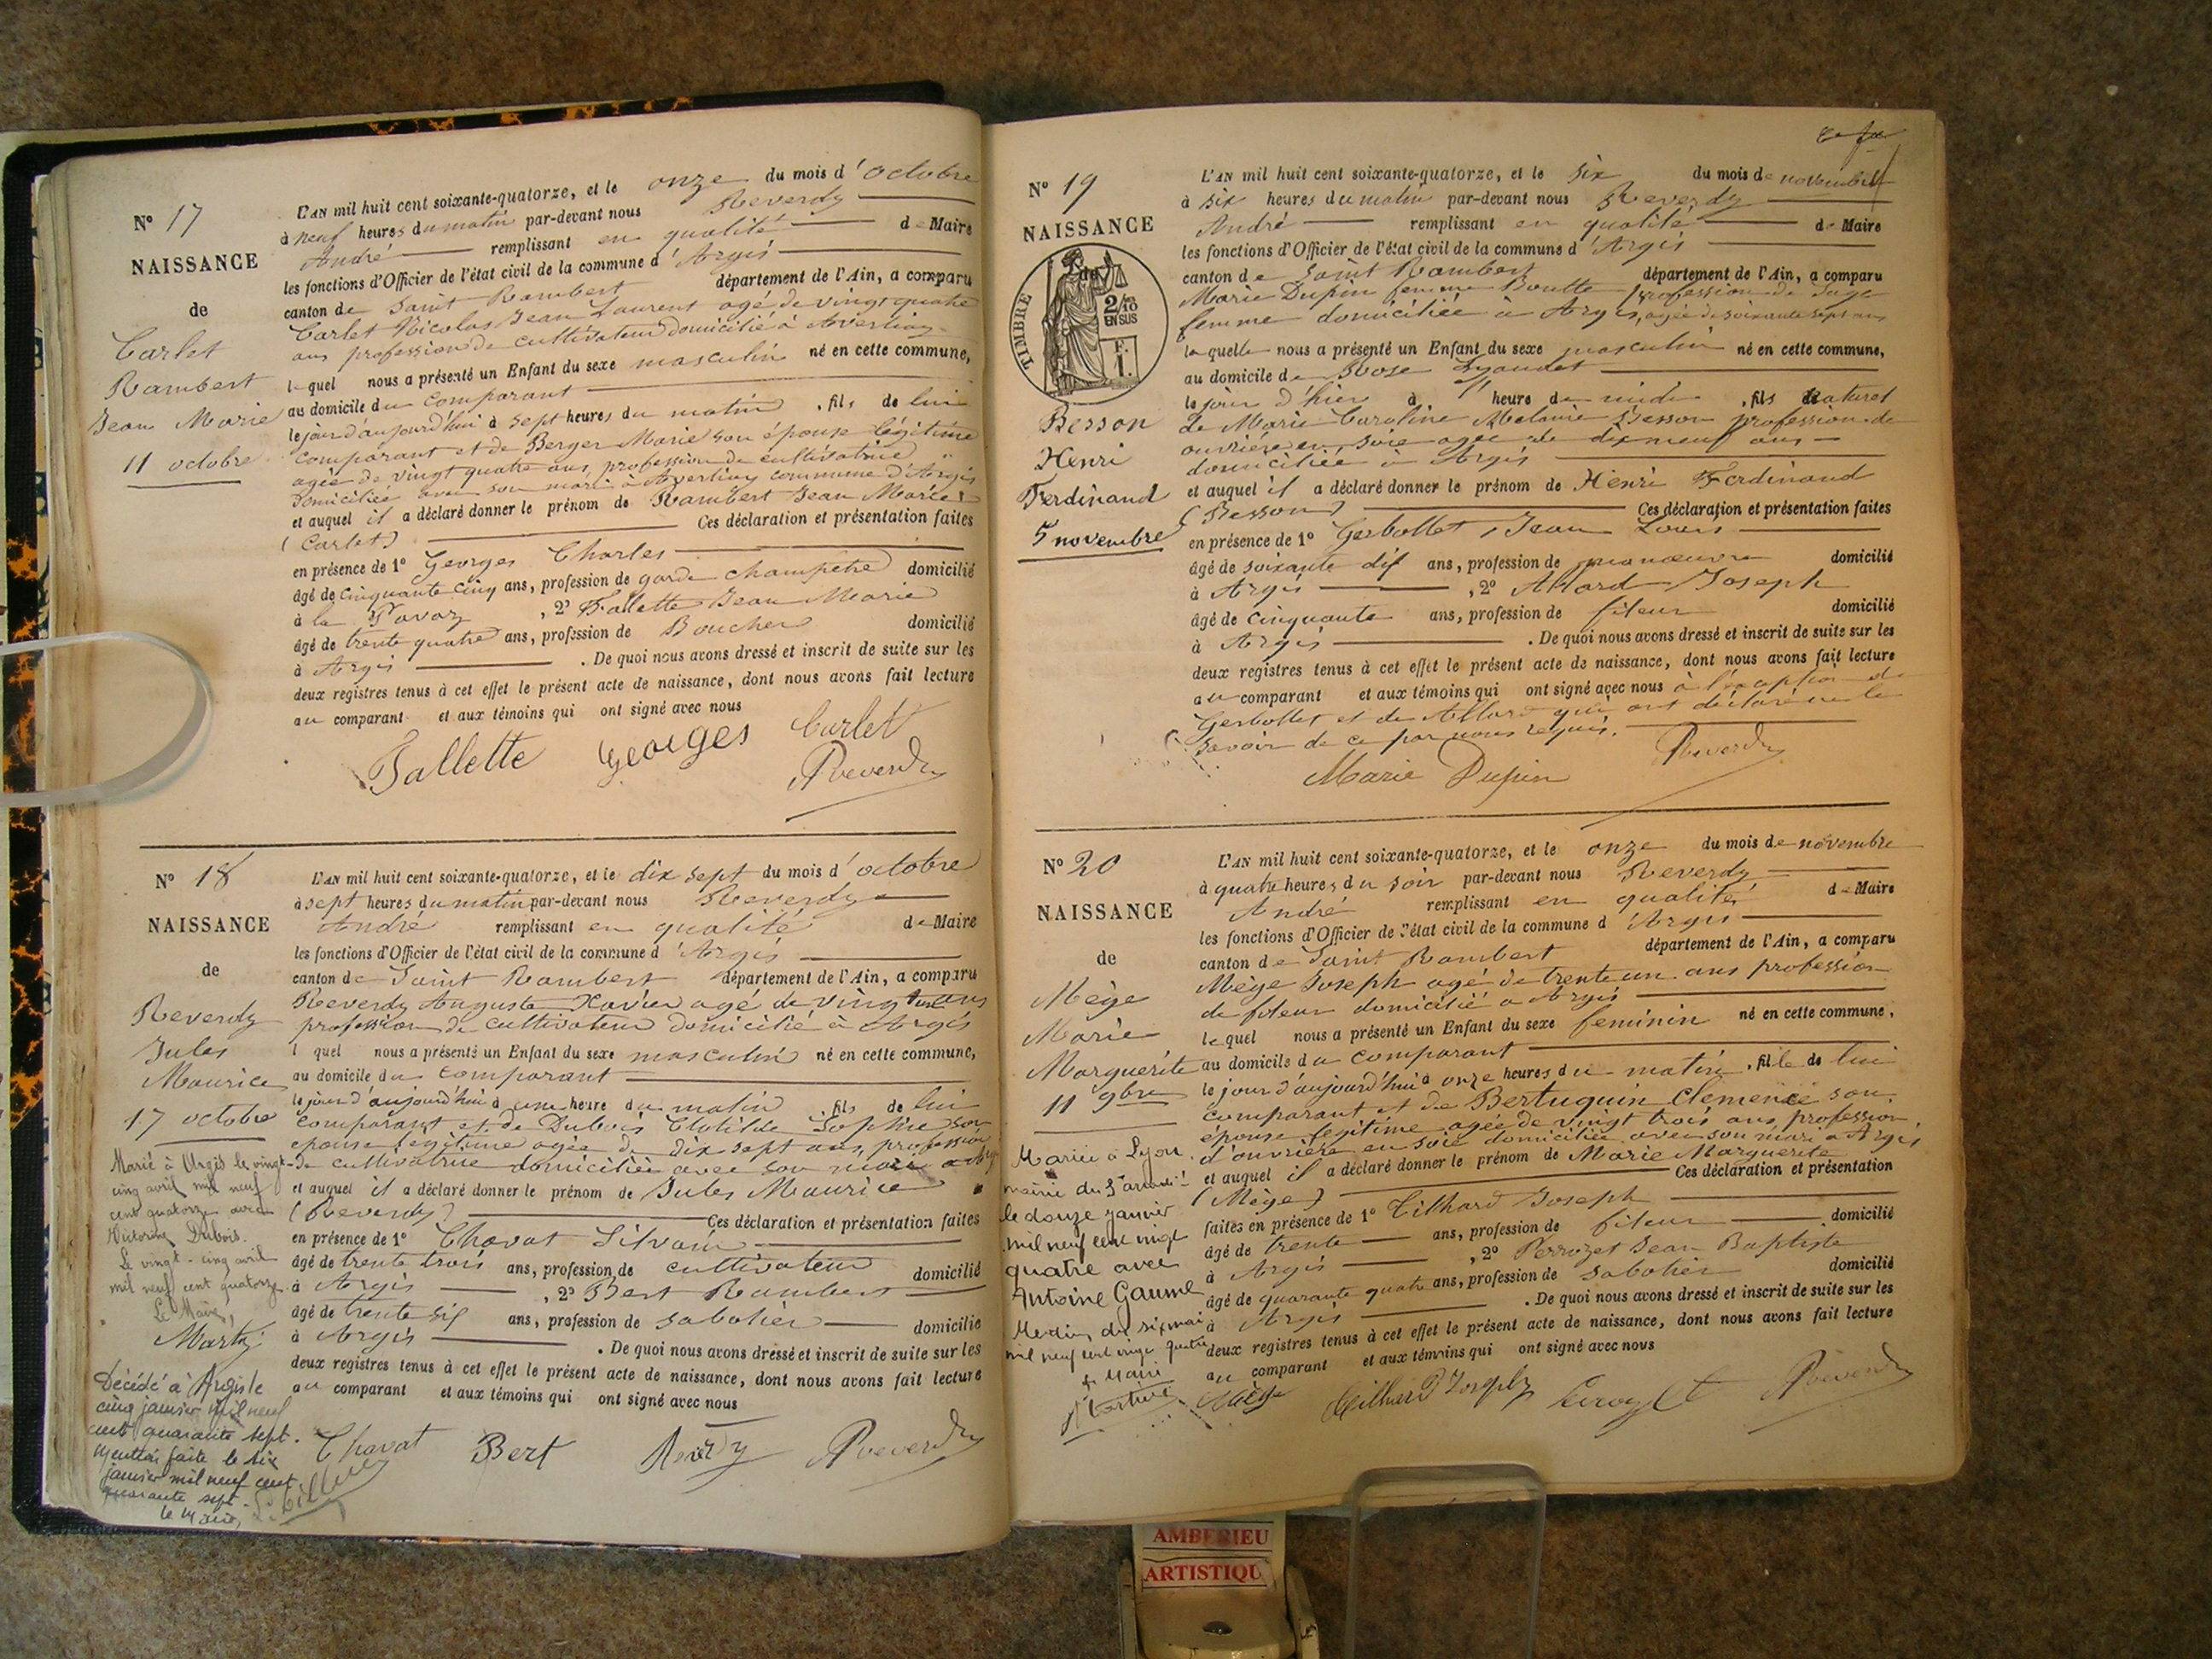 N° 17
NAISSANCE
de
Carlet
Rambert
Jean Marie
11 octobre
L'AN mil huit cent soixante-quatorze, et le onze du mois d'octobre
à neuf heures du matin par-devant nous Reverdy
André remplissant en qualité de Maire
les fonctions d'Officier de l'état civil de la commune d'Argis
canton de Saint Rambert département de l'Ain, a comparu
Carlet Nicolas Jean Laurent agé de vingt quatre
ans profession de cultivateur domicilié à Averliaz
lequel nous a présenté un Enfant du sexe masculin né en cette commune,
au domicile du comparant
le jour d'aujourd'hui à sept heures du matin, fils de lui
comparant et de Berger Marie son épouse légitime
agée de vingt quatre ans, profession de cultivatrice
domiciliée avec son mari à Averliaz commune d'Argis
et auquel il a déclaré donner le prénom de Rambert Jean Marie
(Carlet) Ces déclaration et présentation faites
en présence de 1° Georges Charles
âgé de cinquante cinq ans, profession de garde champêtre domicilié
à la , 2° Fallette Jean Marie
âgé de trente quatre ans, profession de Boucher domicilié
à Argis . De quoi nous avons dressé et inscrit de suite sur les
deux registres tenus à cet effet le présent acte de naissance, dont nous avons fait lecture
au comparant et aux témoins qui ont signé avec nous
Fallette Georges Carlet
Reverdy
N° 18
NAISSANCE
de
Reverdy
Jules
Maurice
17 octobre
Marié à Argis le vingt-
cinq avril mil neuf
cent quatorze avec
Victorine Dubois.
Le vingt-cinq avril
mil neuf cent quatorze.
Le Maire,
Martin
Décédé à Argis le
cinq janvier mil neuf
cent quarante sept.
Mention faite le six
janvier mil neuf cent
quarante sept.
le Maire,
L'AN mil huit cent soixante-quatorze, et le dix sept du mois d'octobre
à sept heures du matin par-devant nous Reverdy
André remplissant en qualité de Maire
les fonctions d'Officier de l'état civil de la commune d'Argis
canton de Saint Rambert département de l'Ain, a comparu
Reverdy Auguste Xavier agé de vingt ans
profession de cultivateur domicilié à Argis
l quel nous a présenté un Enfant du sexe masculin né en cette commune,
au domicile du comparant
le jour d'aujourd'hui à une heure du matin, fils de lui
comparant et de Dubois Clotilde Sophie son
epouse légitime agée de dix sept ans, profession
de cultivatrice domiciliée avec son mari a Argis
et auquel il a déclaré donner le prénom de Jules Maurice
(Reverdy) Ces déclaration et présentation faites
en présence de 1° Chavat Silvain
âgé de trente trois ans, profession de cultivateur domicilié
à Argis , 2° Bert Rambert
âgé de trente six ans, profession de sabotier domicilié
à Argis . De quoi nous avons dressé et inscrit de suite sur les
deux registres tenus à cet effet le présent acte de naissance, dont nous avons fait lecture
au comparant et aux témoins qui ont signé avec nous
Chavat Bert Reverdy Reverdy
N° 19
NAISSANCE
de
TIMBRE
2/10
EN SUS
F.
1.
Besson
Henri
Ferdinand
5 novembre
L'AN mil huit cent soixante-quatorze, et le six du mois de novembre
à six heures du matin par-devant nous Reverdy
André remplissant en qualité de Maire
les fonctions d'Officier de l'état civil de la commune d'Argis
canton de Saint Rambert département de l'Ain, a comparu
Marie Dupin femme Boutte profession de Sage
femme domiciliée à Argis, agée de soixante sept ans
laquelle nous a présenté un Enfant du sexe masculin né en cette commune,
au domicile de Rose
le jour d'hier à 1' heure de midi, fils naturel
de Marie Caroline Melanie Besson profession de
ouvrière en soie agée de dix neuf ans
domiciliée à Argis
et auquel il a déclaré donner le prénom de Henri Ferdinand
(Besson) Ces déclaration et présentation faites
en présence de 1° Gerbollet Jean Louis
âgé de soixante dix ans, profession de manoeuvre domicilié
à Argis , 2° Allard Joseph
âgé de cinquante ans, profession de fileur domicilié
à Argis . De quoi nous avons dressé et inscrit de suite sur les
deux registres tenus à cet effet le présent acte de naissance, dont nous avons fait lecture
au comparant et aux témoins qui ont signé avec nous à l'exception de
Gerbollet et de Allard qui ont déclaré ne le
savoir de ce par nous requis.
Marie Dupin Reverdy
N° 20
NAISSANCE
de
Mège
Marie
Marguerite
11 9bre
Mariée à Lyon
mairie du 3e arrondt
le douze janvier
mil neuf cent vingt
quatre avec
Antoine Gaume
mil neuf cent vingt quatre
Le Maire
L'AN mil huit cent soixante-quatorze, et le onze du mois de novembre
à quatre heures du soir par-devant nous Reverdy
André remplissant en qualité de Maire
les fonctions d'Officier de l'état civil de la commune d'Argis
canton de Saint Rambert département de l'Ain, a comparu
Mège Joseph agé de trente un ans profession
de fileur domicilié à Argis
lequel nous a présenté un Enfant du sexe feminin né en cette commune,
au domicile du comparant
le jour d'aujourd'hui à onze heures du matin, fille de lui
comparant et de Bertuquin Clemence son
épouse legitime agée de vingt trois ans, profession
d'ouvrière en soie domiciliée avec son mari a Argis
et auquel il a déclaré donner le prénom de Marie Marguerite
(Mège) Ces déclaration et présentation
faites en présence de 1° Tilhard Joseph
âgé de trente ans, profession de fileur domicilié
à Argis , 2° Perrozet Jean Baptiste
âgé de quarante quatre ans, profession de sabotier domicilié
à Argis . De quoi nous avons dressé et inscrit de suite sur les
deux registres tenus à cet effet le présent acte de naissance, dont nous avons fait lecture
au comparant et aux témoins qui ont signé avec nous
Mège Tilhard Joseph Reverdy
AMBERIEU
ARTISTIQU